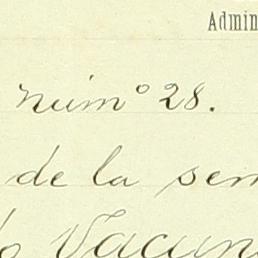 Admin
núm° 28.
de la sem
do Vacun